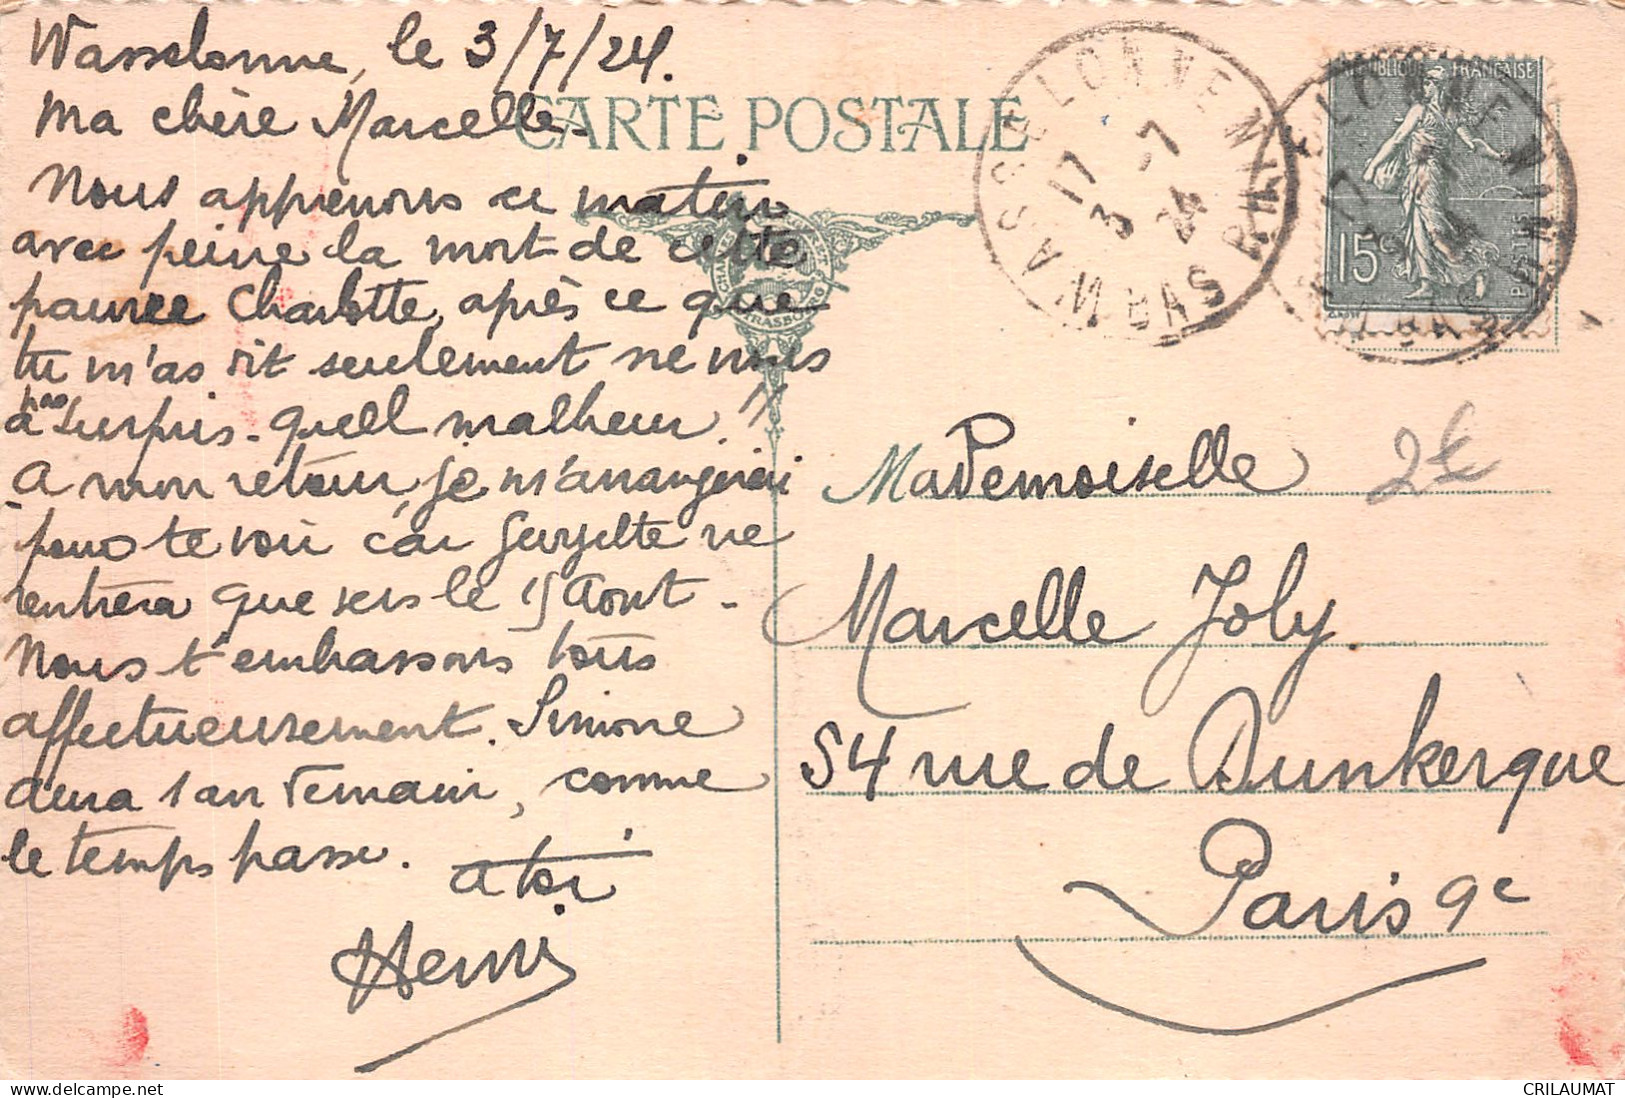 Wasselonne, le 3/7/24.
Ma chère Marcelle
CARTE POSTALE
Nous apprenons ce matin
avec peine la mort de cette
pauvre Charlotte, après ce que
tu m'as dit seulement ne nous
a pas surpris - quell malheur!!
A mon retour, je m'arrangerai
pour te voir car ne
rentrera que vers le 15 Aout -
Nous t'embrassons tous
affectueusement. Simone
aura 1 an demain, comme
le temps passe.
a toi
Henri
WASSELONNE
17
3 -7
24
BAS RHIN
REPUBLIQUE FRANÇAISE
15c
POSTES
STRASBOURG
2€
Mademoiselle
Marcelle Joly.
54 rue de Dunkerque
Paris 9e
CRILAUMAT